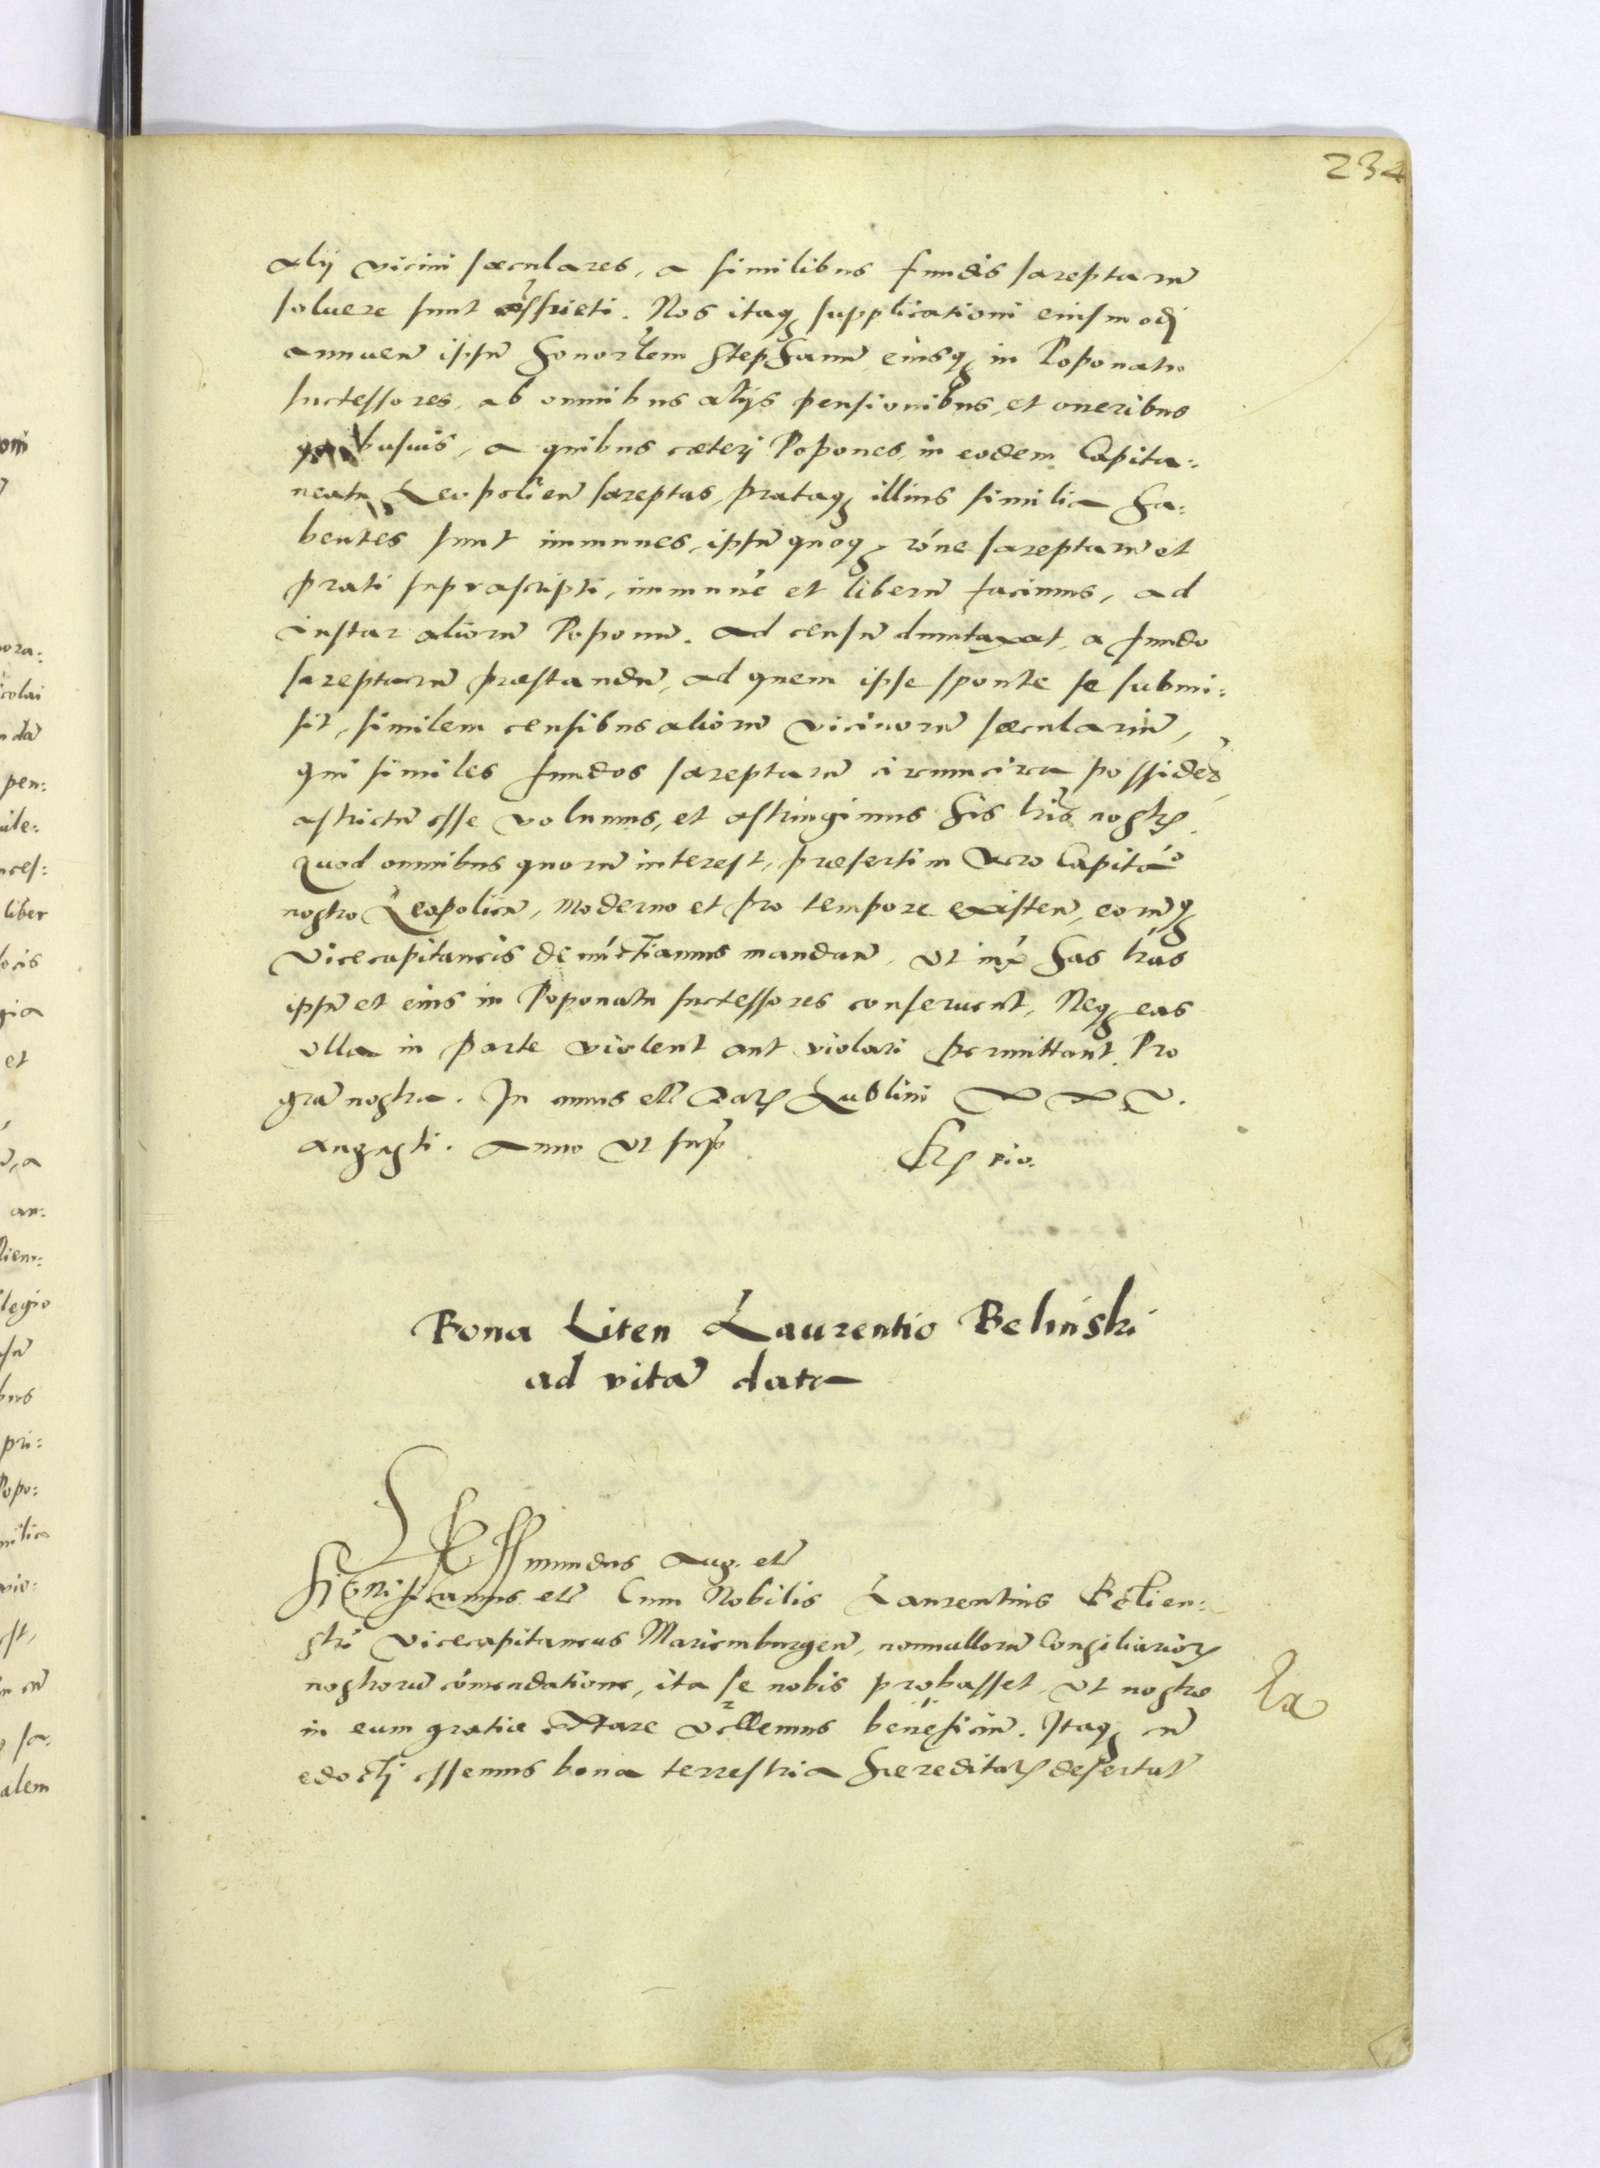 234
alij vicini sæculares, a similibus fundis sareptarũ
soluere sunt assueti. Nos itaq supplicationi eiusmodj
annuen̄ ipsũ honorłem Stephanũ eiusq in Poponatu
successores, ab omnibus alijs pensionibus, et oneribus
quibusuis, a quibus cæterj Popones in eodem Capita:
neatu Leopolien̄ sareptas, prataq illius similia ha:
bentes sunt immunes, ipsũ quoq rōne sareptarũ et
prati suprascripti, immunē et liberũ facimus, ad
instar aliorũ Poponũ. Ad censũ duntaxat, a fundo
sareptarũ præstandũ, ad quem ipse sponte se submi:
sit, similem censibus aliorũ vicinorũ sæculariũ,
qui similes fundos sareptarũ circumcirca possidēt
astrictũ esse volumus, et astringimus his lr̄is nostris.
Quod omnibus quorũ interest, præsertim vero Capitā⁰
nostro Leopolien̄, moderno et pro tempore existen̄, eorũq
Vicecapitaneis denūctiamus mandan̄, vt iux̄ has lr̄as
ipsũ et eius in Poponatu successores conseruent, Neq eas
vlla in parte violent aut violari permittant. Pro
grā nostra. In cuius etc̄ Dat Lublini
augusti. Anno vt supr̄
Bona Liten Laurentio Belinski
ad vitā data
Sigismundus Aug. etc̄
Significamus etc̄ Cum Nobilis Laurentius Belien:
ski Vicecapitaneus Mariemburgen̄, nonnullorũ Consiliarior
nostrorũ cōmendatione, ita se nobis probasset, vt nostræ
in eum gratiæ extare vellemus beneficiũ. Itaq cũ
edoctj essemus bona terrestria hæreditar desertat